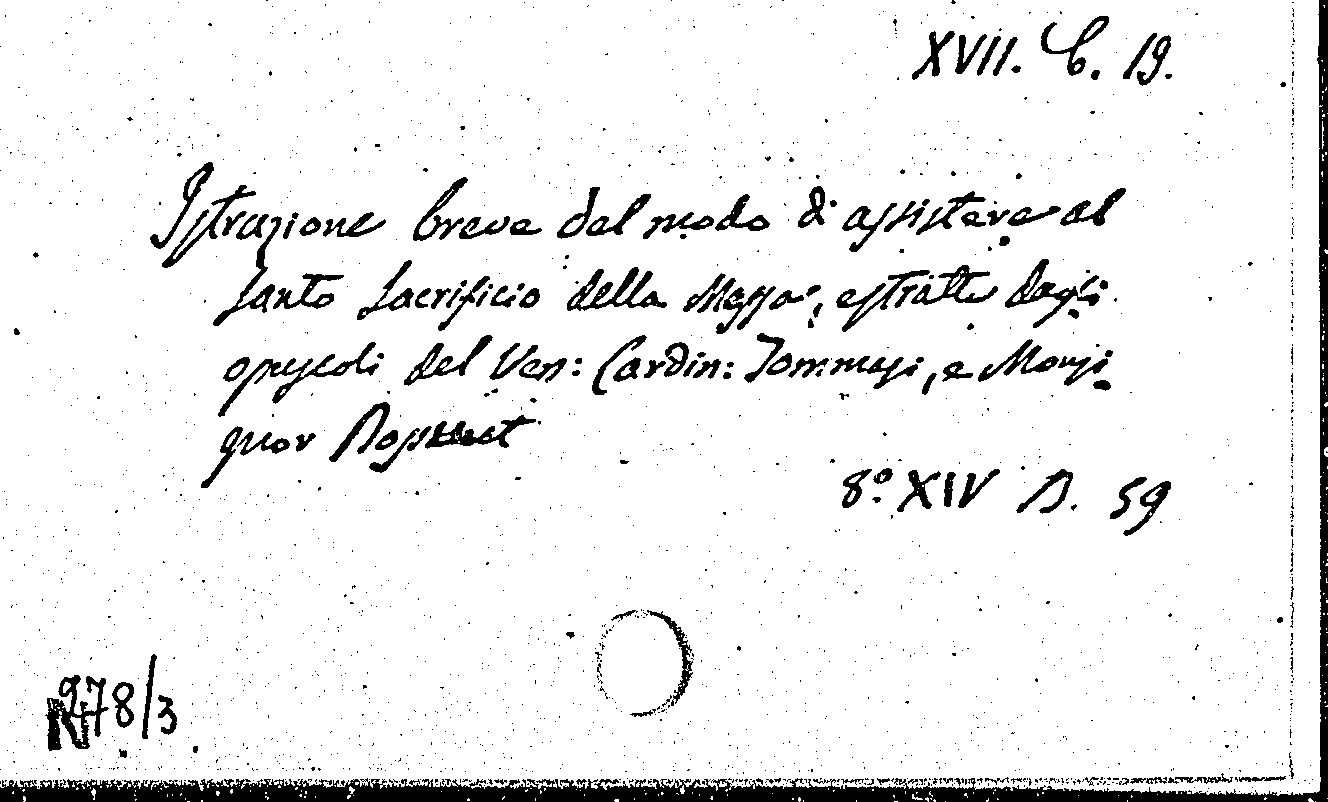 XVII. C. 19.
Istruzione breve del modo di assistere al
santo sacrificio della Messa, estratta dagli
opuscoli del Ven: Cardin: Tommasi, e Monsi
gnor Bossuet
8.º XIV B. 59
278/3